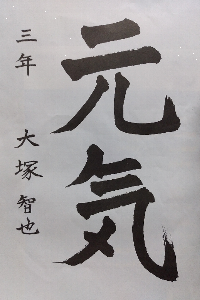 元気
三年 大塚智也